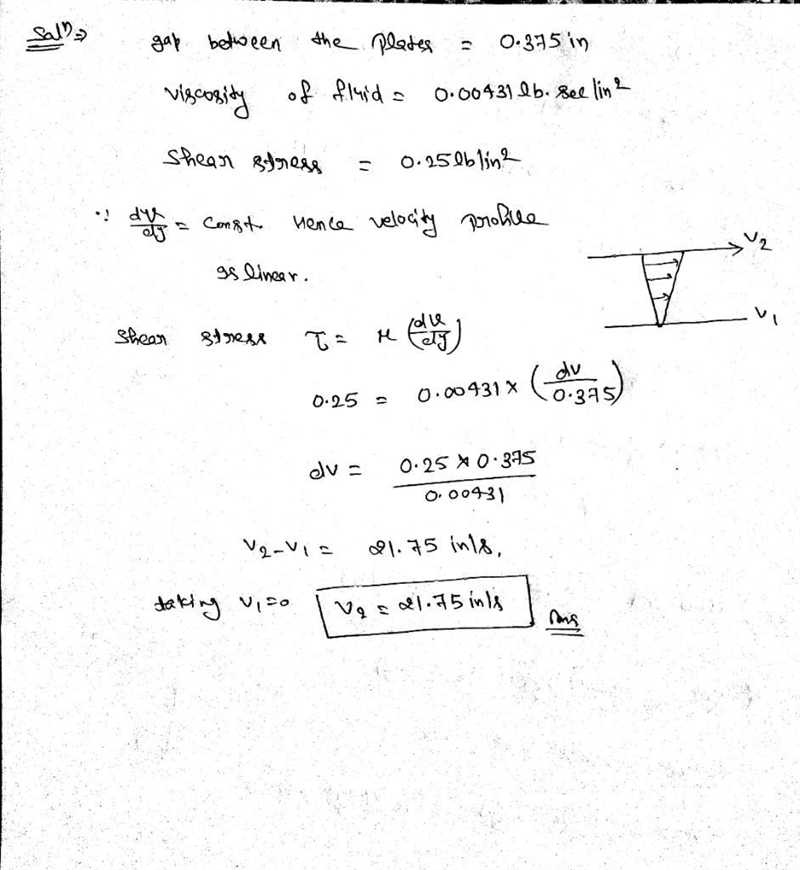 Solⁿ ⇒ gap between the plates = 0.375 in
viscosity of fluid = 0.00431 lb. sec/in²
Shear stress = 0.25 lb/in²
∵ du/dy = const. Hence velocity profile
is linear.
V₂
V₁
Shear stress τ = μ (du/dy)
0.25 = 0.00431 × (dv/0.375)
dv = 0.25 × 0.375 / 0.00431
V₂ - V₁ = 21.75 in/s,
taking V₁ = 0 V₂ = 21.75 in/s Ans